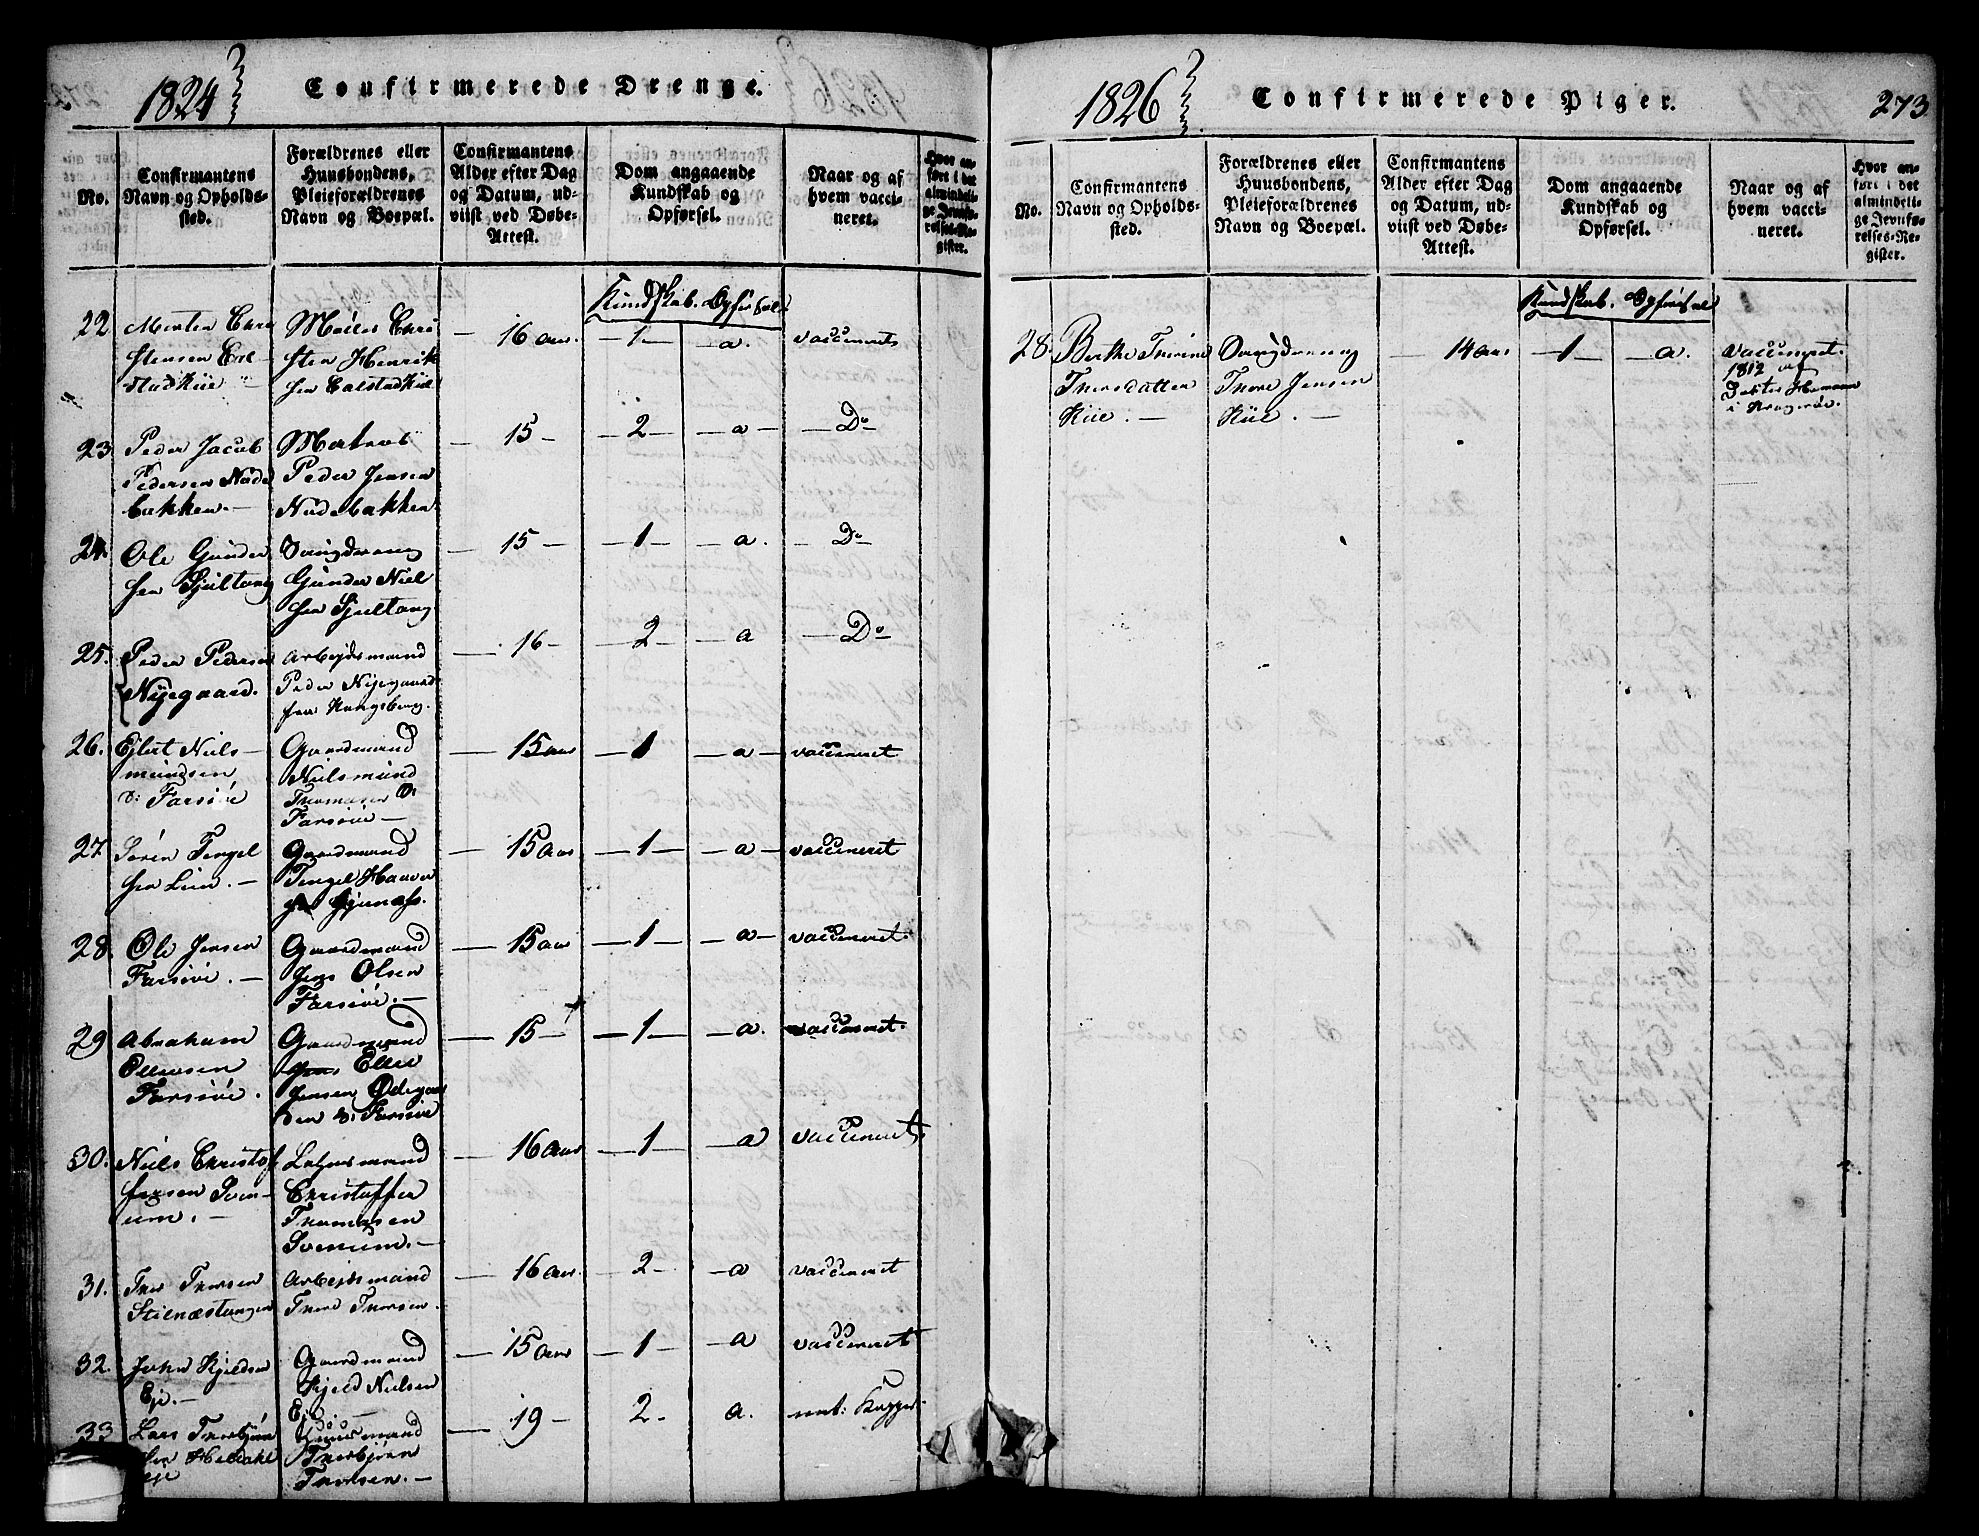 1824
Confirmerede Drenge.
No.
Confirmantens
Navn og Opholds-
sted.
Forældrenes eller
Huusbondens,
Pleieforældrenes
Navn og Boepæl.
Confirmantens
Alder efter Dag
og Datum, ud-
viist ved Døbe-
Attest.
Dom angaaende
Kundskab og
Opførsel.
Naar og af
hvem vacci-
neret.
Hvor an-
ført i det
almindeli-
ge Jevnfø-
relses-Re-
gister.
Kundskab. Opførsel
22
Morten Chri
stensen
stadkiie
Chri
sten Henrik
sen
16 aar
1
a.
vaccineret
23
Peder Jacob
Pedersen
bakken.
Matros
Peder Jensen
bakken
15
2
a
Do
24.
Ole Gunder
sen Sjeltang
Gunder Niel
sen Sjeltang
15
1
a.
Do
25.
Peder Pedersen
Nyegaard.
Arbejdsmand
Peder Nyegaard
fra Kongsberg.
16
2
a
Do
26.
Ejlert Niels
mundsen
Farsiøe
Gaardmand
Nielsmund
Thomasen
Farsiøe
15 aar
1
a
vaccineret
27.
Søren Tengel
sen Lien.
Gaardmand
Tengel
15 aar
1
a
vaccineret
28
Ole Jensen
Farsiøe.
Gaardmand
Jens Olsen
Farsiøe.
15 aar
1
a
vaccineret.
29
Abraham
Ellevsen
Farsiøe.
Gaardmand
Jens Ellev
Jensen Ødegaar
den Farsiøe
15
1
a.
vaccineret.
30.
Niels Christof
fersen
Christoffer
Thomasen
16 aar
1
a
vaccineret
31.
Thor Thorsen
Stilnæstangen
Arbejdsmand
Thore Thorsen.
16 aar
2
a
vaccineret
32.
John Kjeldsen
Eje.
Gaardmand
Kjeld Nielsen
Eje
15 aar
1
a
vaccineret
33
Lars Thorbjørn
sen
eje
Huusmand
Thorbjørn
Thorsen.
19
2
a.
nat: Kopper
1826
Confirmerede Piger.
273
No.
Confirmantens
Navn og Opholds-
sted.
Forældrenes eller
Huusbondens,
Pleieforældrenes
Navn og Boepæl.
Confirmantens
Alder efter Dag
og Datum, ud-
viist ved Døbe-
Attest.
Dom angaaende
Kundskab og
Opførsel.
Naar og af
hvem vacci-
neret.
Hvor an-
ført i det
almindeli-
ge Jevnfø-
relses-Re-
gister.
Kundskab. Opførsel
28.
Berthe Thorine
Thorsdatter
Kiie.
Thore Jensen
Kiie.
14 aar
1
a.
Vaccineret
1812 af
Doktor Homann
i Kragerøe.